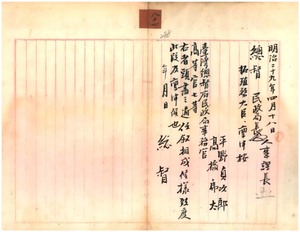 明治二十九年四月十八日
總督 民政局長 人事課長
拓殖務大臣ヘ稟申按
平野貞次郎
高橋
臺灣總督府民政局事務官
高等官七等
右者頭書之通任敘相成候樣致度
此段及稟申候也
年 月 日
總督